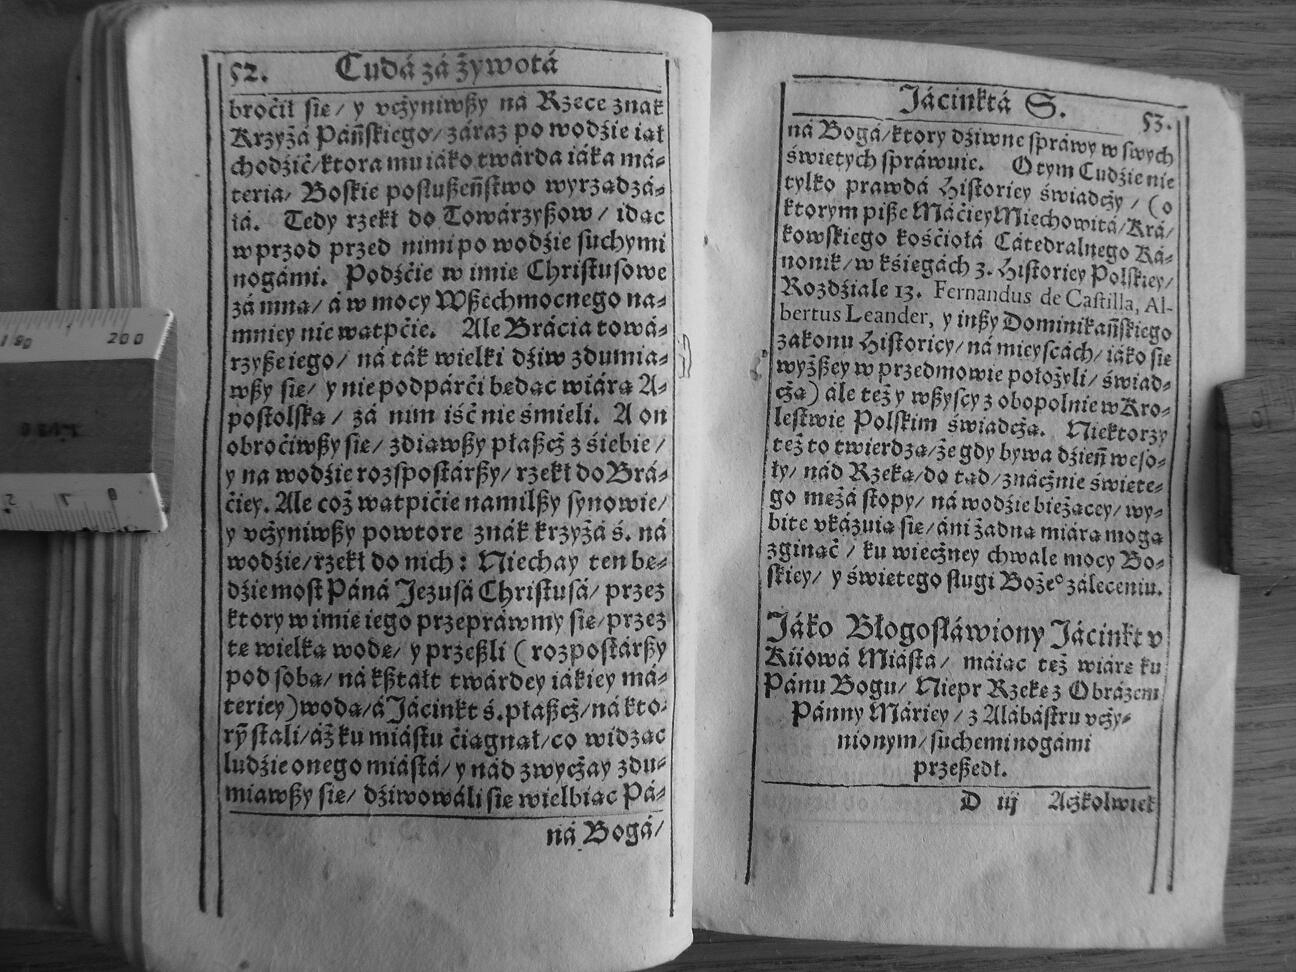 52. Cudá zá żywotá
broćił sie/ y vcżyniwßy ná Rzece znák
Krzyżá Páńſkiego/ záraz po wodźie iął
chodźić/ktora mu iáko twárda iáka má⸗
teria/ Boſkie poſłußeńſtwo wyrządzá⸗
łá. Tedy rzekł do Towárzyßow/ idąc
w przod przed nimi po wodźie ſuchymi
nogámi. Podźćie w imie Chriſtuſowe
zá mną/ á w mocy Wßechmocnego na⸗
mniey nie wątpćie. Ale Bráćia towá⸗
rzyße iego/ ná ták wielki dźiw zdumia⸗
wßy ſie/ y nie podpárći bedąc wiárą A⸗
poſtolſką/ zá nim iść nie śmieli. A on
obroćiwßy ſie/ zdiąwßy płaßcż z śiebie/
y ná wodźie rozſpoſtárßy/ rzekł do Brá⸗
ćiey. Ale coż wątpićie namilßy ſynowie/
y vcżyniwßy powtore znák krzyżá ś. ná
wodźie/rzekł do nich: Niechay ten be⸗
dźie moſt Páná Jezuſá Chriſtuſá/ przez
ktory w imie iego przepráwmy ſie/przez
te wielką wode/ y przeßli (rozpoſtárßy
pod ſobą/ ná kßtałt twárdey iákiey má⸗
teriey) wodą/á Jácinkt ś. płaßcż/ná kto⸗
rym ſtali/áż ku miáſtu ćiągnął/co widząc
ludźie onego miáſtá/ y nád zwycżay zdu⸗
miawßy ſie/ dźiwowáli ſie wielbiąc Pá⸗
ná Bogá/
Jácinktá S. 53.
ná Bogá/ktory dźiwne ſpráwy w ſwych
świętych ſpráwuie. O tym Cudźie nie
tylko prawdá Hiſtoriey świádcży/ (o
ktorym piße Máćiey Miechowitá/Krá/
kowſkiego kośćiołá Cátedralnego Ká⸗
nonik/ w kśięgách 3. Hiſtoriey Polſkiey/
Rozdźiale 13. Fernandus de Caſtilla, Al-
bertus Leander, y inßy Dominikáńſkiego
zakonu Hiſtoricy/ ná mieyſcách/ iáko ſie
wyżßey w przedmowie położyli/ świad⸗
cżą) ále też y wßyſcy z obopolnie w Kro⸗
leſtwie Polſkim świadcżą. Niektorzy
też to twierdzą/że gdy bywa dźień weſo⸗
ły/ nád Rzeką/do tąd/znácżnie święte⸗
go meżá ſtopy/ ná wodźie bieżącey/ wy⸗
bite vkázuią ſie/áni żadną miárą mogą
zginąć/ ku wiecżney chwale mocy Bo⸗
ſkiey/ y świętego ſługi Boże° záleceniu.
Jáko Błogoſłáwiony Jácinkt v
Kiiowá Miáſtá/ máiąc też wiárę ku
Pánu Bogu/ Niepr Rzekę z Obrázem
Pánny Máriey/ z Alábáſtru vcży⸗
nionym/ſuchemi nogámi
przeßedł.
D iij Acżkolwiek